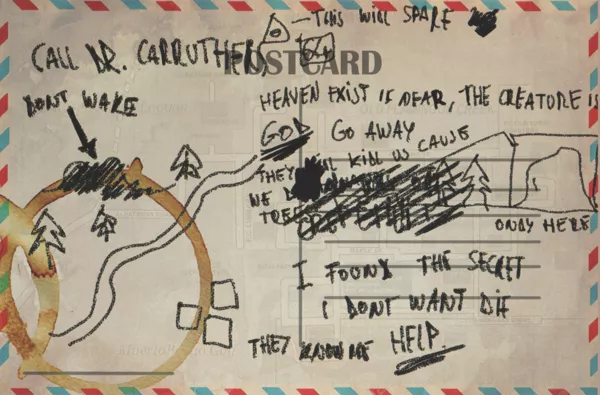 THIS WILL SPARE
CALL DR. CARRUTHERS
POSTCARD
DONT WAKE
HEAVEN EXIST IS NEAR, THE CREATURE IS
GOD GO AWAY
CAUSE
THEY WILL KILL US
WE
ONLY HERE
I FOUND THE SECRET
I DONT WANT DIE
THEY KNOW ME HELP.